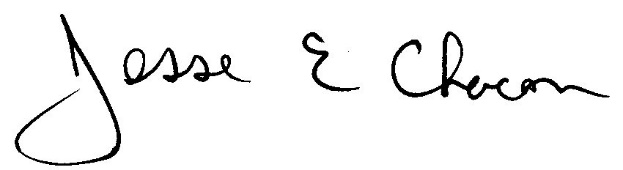 Jesse E Chacon